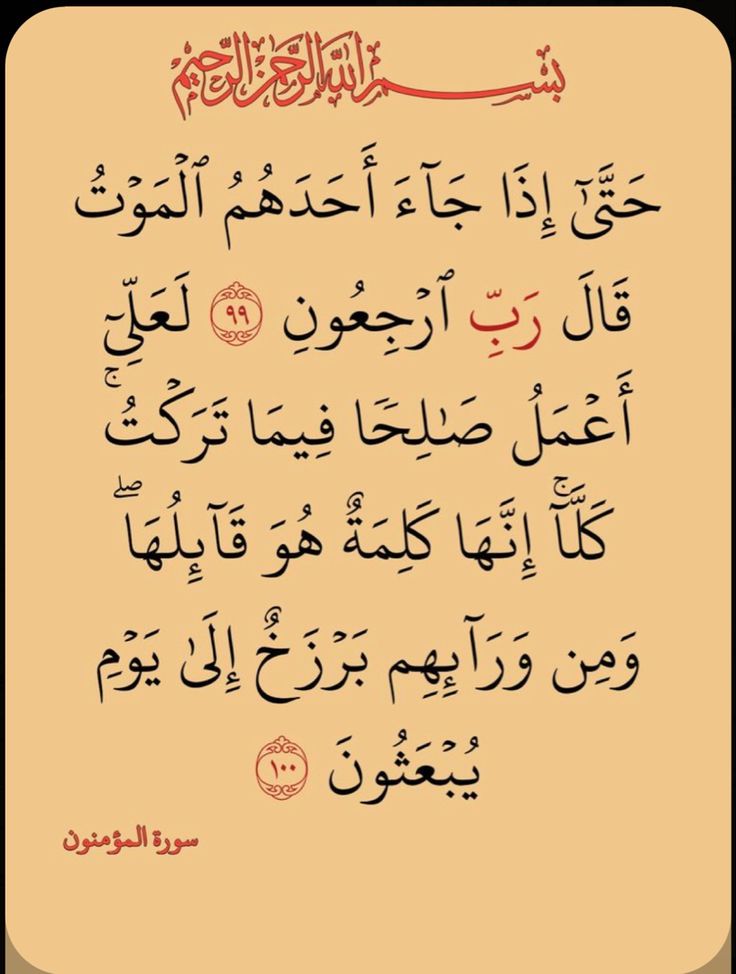 بسم الله الرحمن الرحيم
حَتَّىٰٓ إِذَا جَآءَ أَحَدَهُمُ ٱلْمَوْتُ
قَالَ رَبِّ ٱرْجِعُونِ ٩٩ لَعَلِّىٓ
أَعْمَلُ صَـٰلِحًا فِيمَا تَرَكْتُ ۚ
كَلَّآ ۚ إِنَّهَا كَلِمَةٌ هُوَ قَآئِلُهَا ۖ
وَمِن وَرَآئِهِم بَرْزَخٌ إِلَىٰ يَوْمِ
يُبْعَثُونَ ١٠٠
سورة المؤمنون